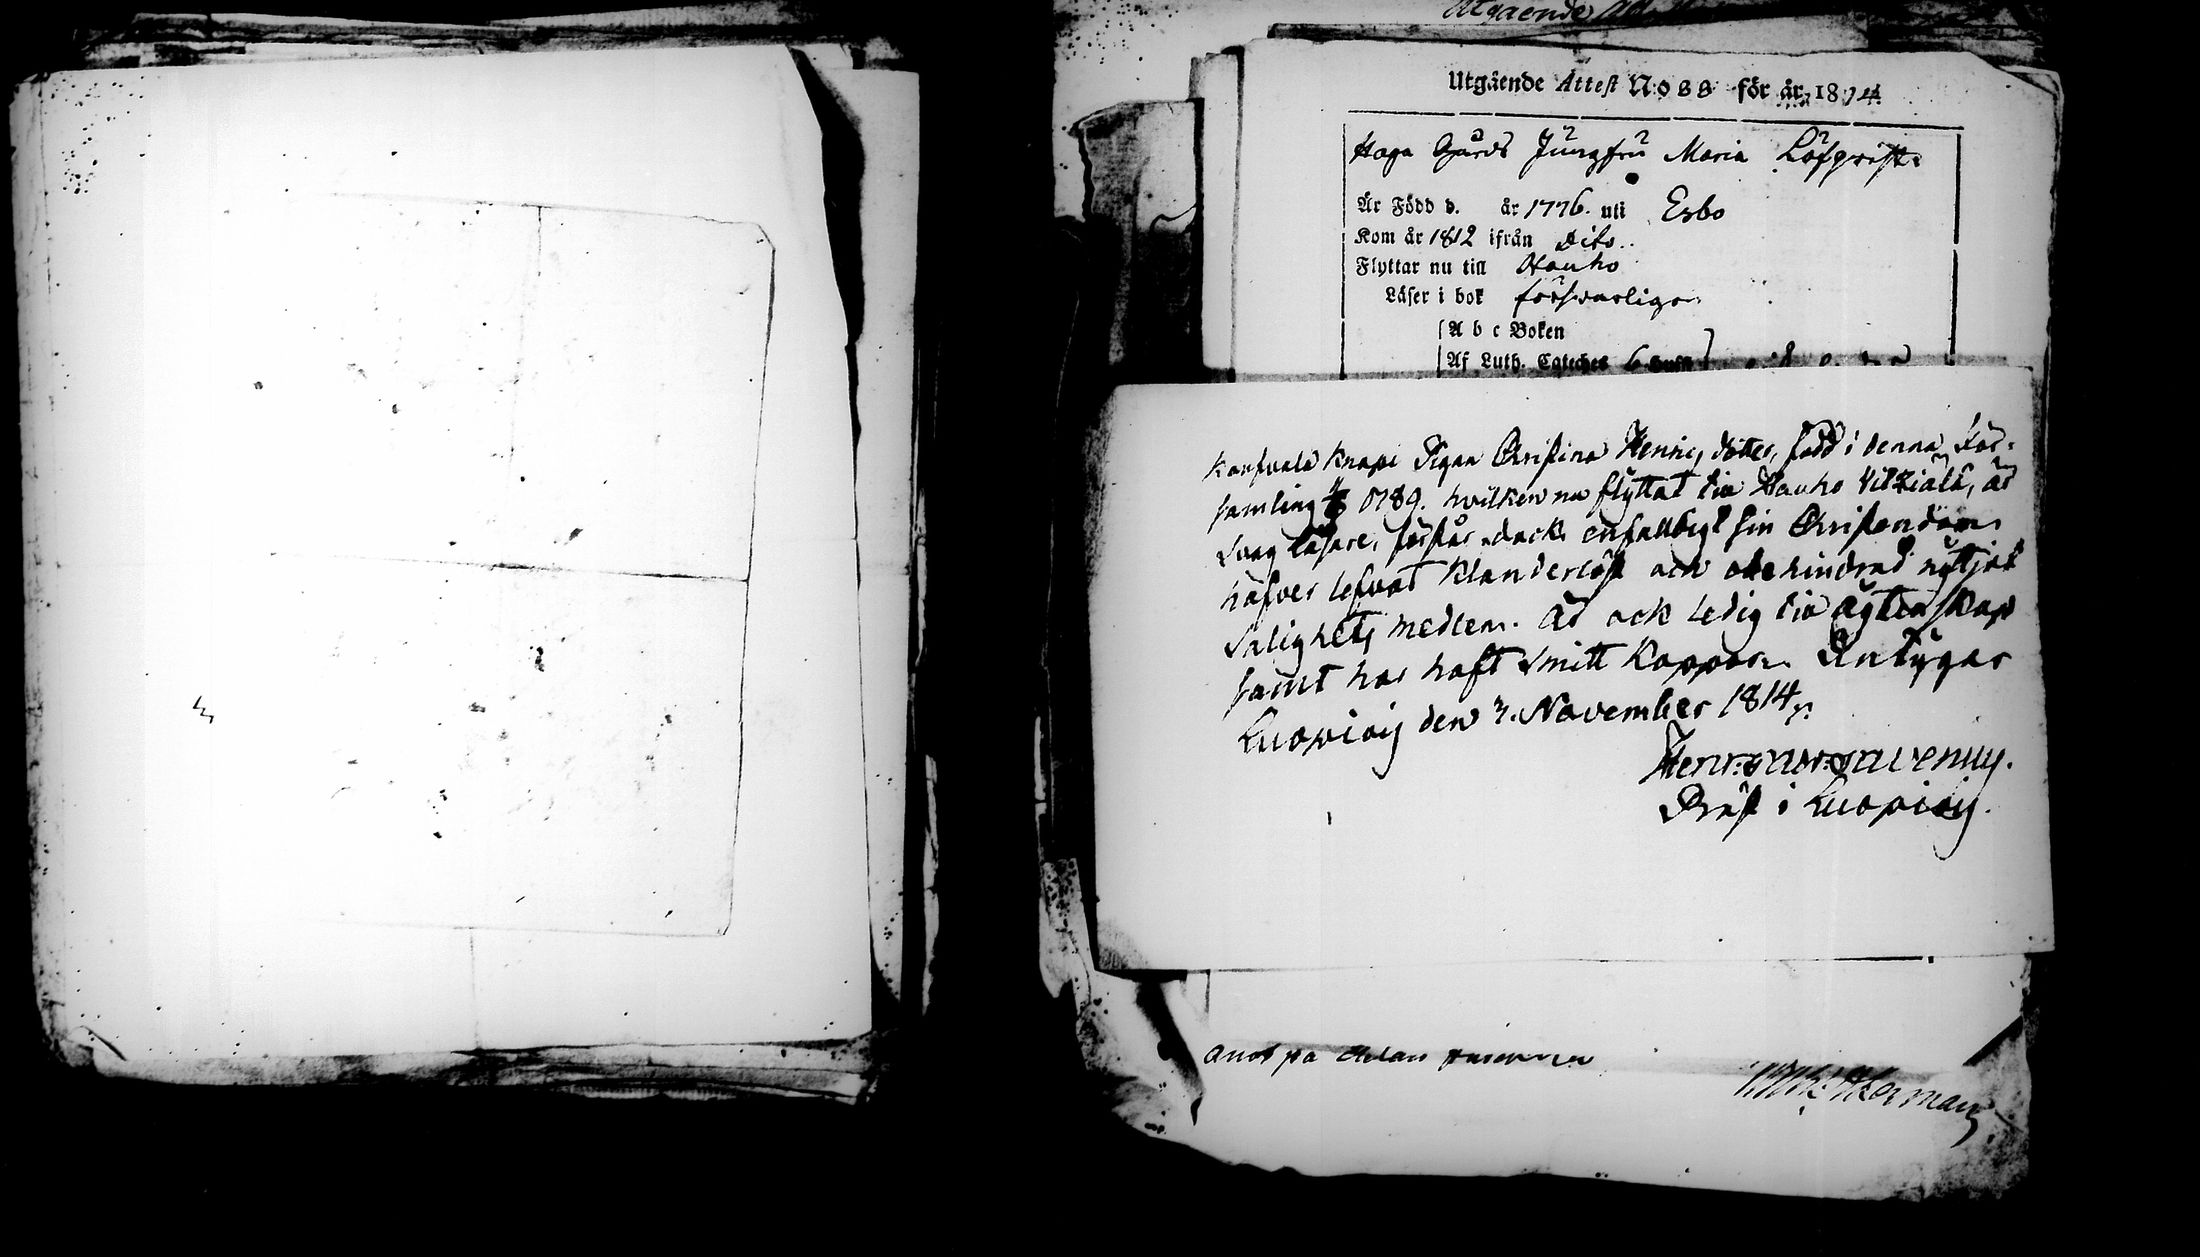 Utgående
Utgående Attest No 88 för år 1814.
Haga Gårds Jungfru Maria Löfqvist
Är Född d. år 1776. uti Esbo
Kom år 1812 ifrån dito.
Flyttar nu till Hauho
Läser i bok försvarliga
A b c Boken
Af Luth. Cateches 6
Knapi Pigan Christina Henrics dotter, född i denna För-
samling 1789. hvilken nu flyttat till Hauho Vitziala, är
svag läsare, förstår dock enfaldigt sin Christendom
hafver lefvat Klanderlöst och obehindrad nyttjat
Salighets medlem. Är ock ledig till ägtenskap
samt har haft smitt Koppor. Intygar
Luopiois den 3. November 1814.
Henr:
Präst i Luopiois.
på